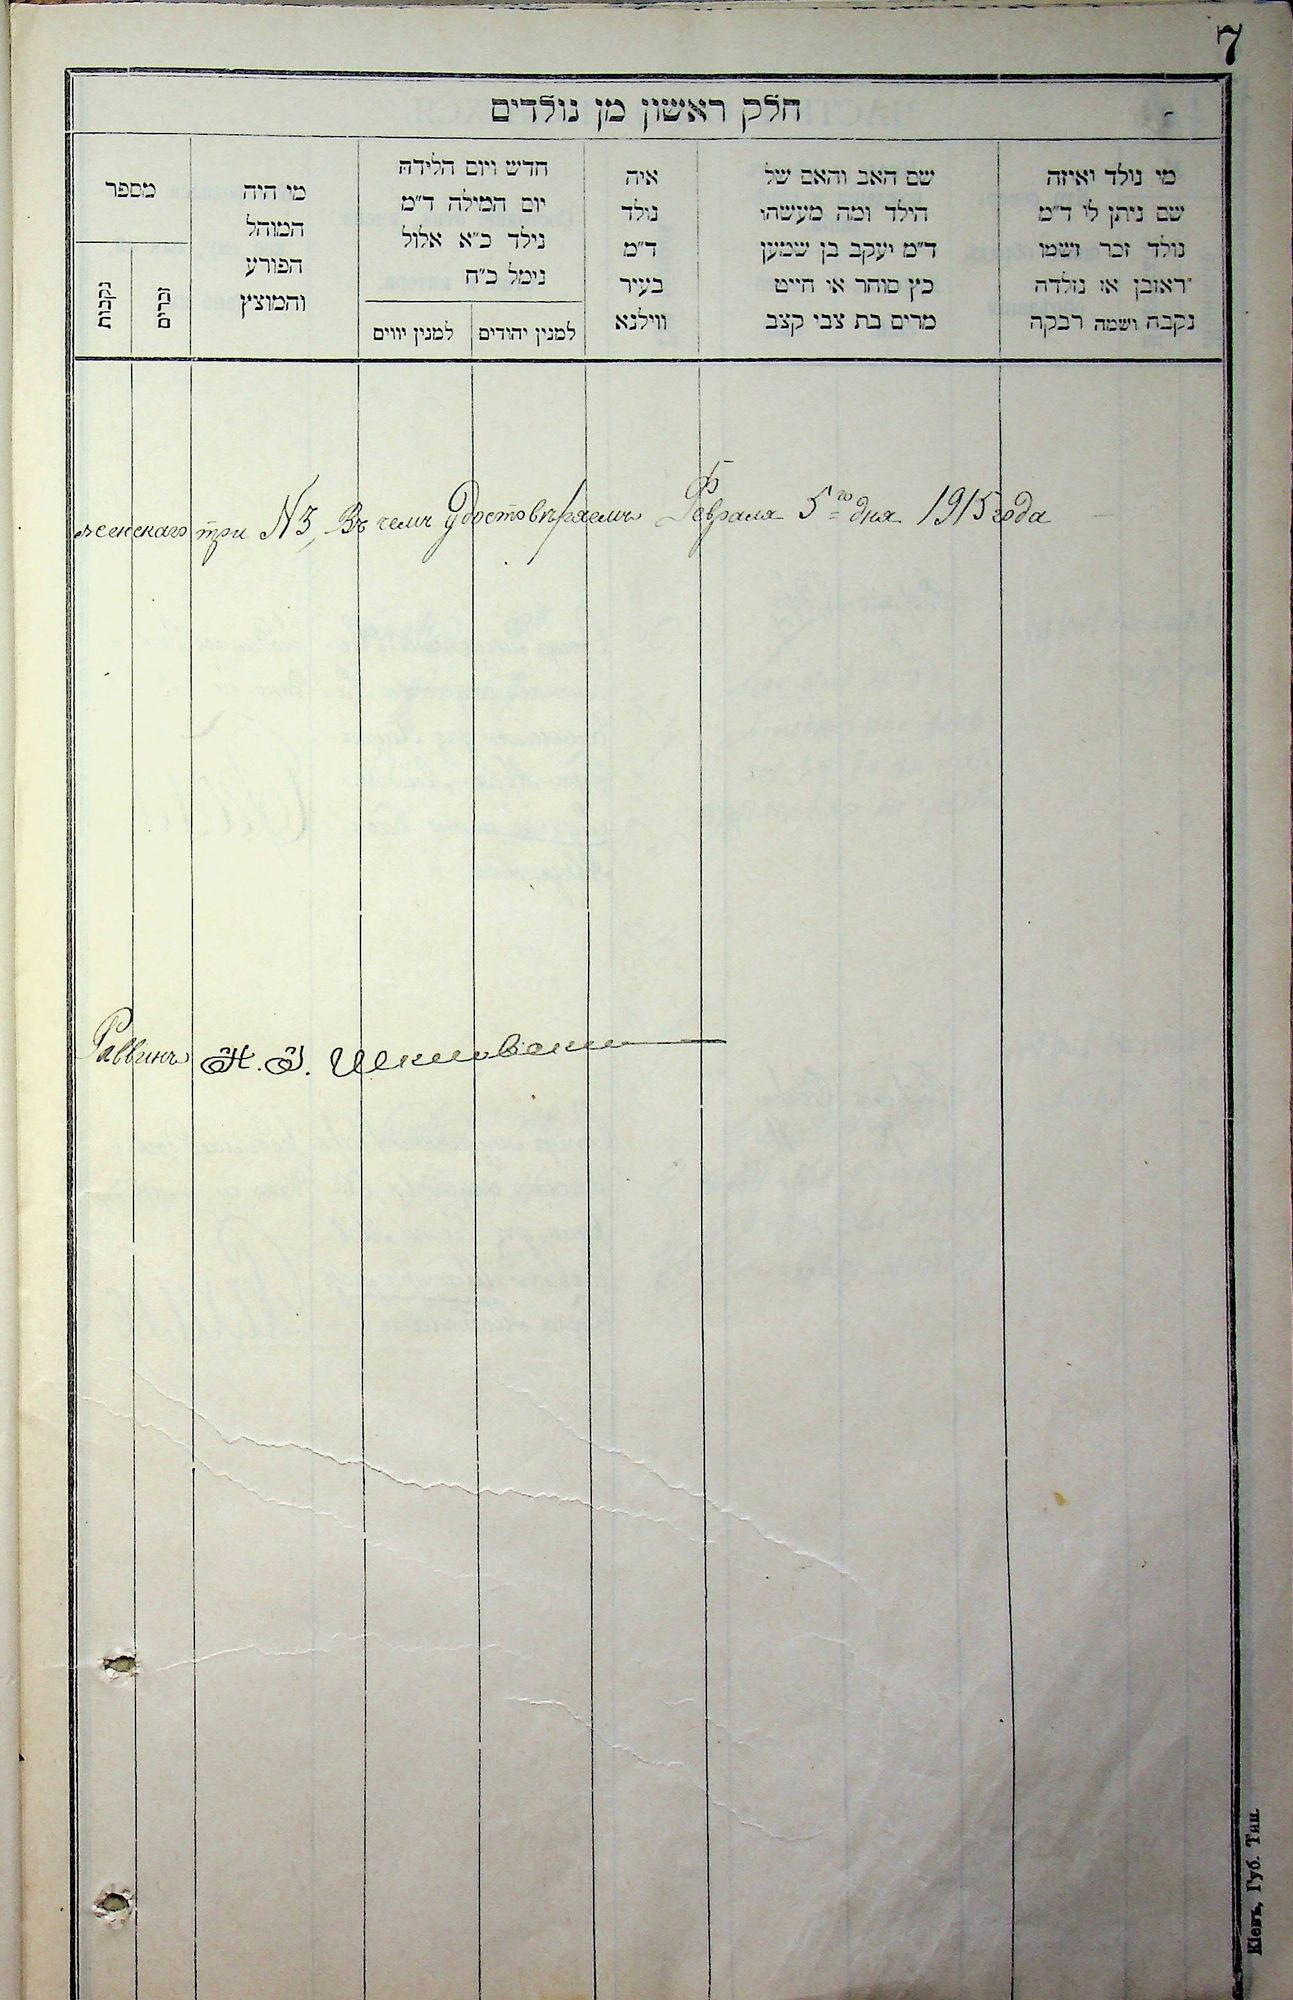 7
חלק ראשון מן נולדים
מי נולד ואיזה
שם ניתן לו ד"מ
נולד זכר ושמו
ראובן או נולדה
נקבה ושמה רבקה
שם האב והאם של
הילד ומה מעשהו
ד"מ יעקב בן שמעון
כץ סוחר או חייט
מרים בת צבי קצב
איה
נולד
ד"מ
בעיר
ווילנא
חדש ויום הלידה
יום המילה ד"מ
נילד כ"א אלול
נימל כ"ח
למנין יהודים
למנין יווים
מי היה
המוהל
הפורע
והמוצץ
מספר
זכרים
נקבות
женскаго три №3, Въ чемъ удостовѣряемъ Февраля 5го дня 1915 года
Раввинъ
Кіевъ, Губ. Тип.